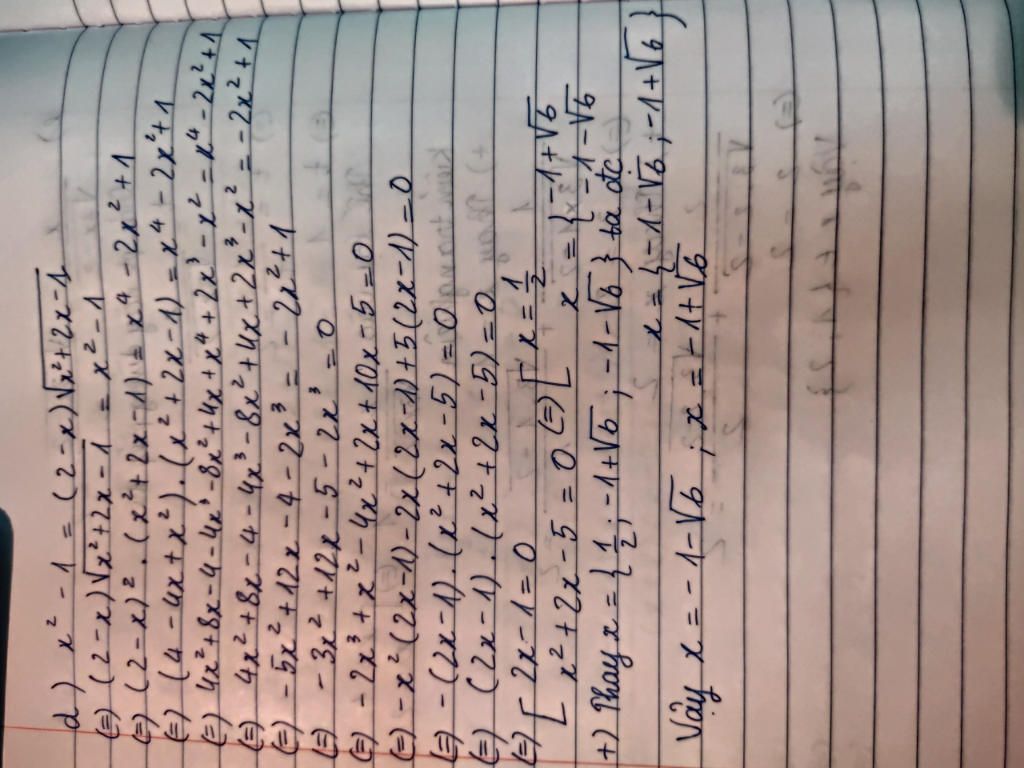 d) x² - 1 = (2-x)√x²+2x-1
(=) (2-x)√x²+2x-1 = x² - 1
(=) (2-x)² . (x²+2x-1) = x⁴ - 2x² + 1
(=) (4 - 4x + x²) . (x² + 2x - 1) = x⁴ - 2x² + 1
(=) 4x² + 8x - 4 - 4x³ - 8x² + 4x + x⁴ + 2x³ - x² = x⁴ - 2x² + 1
(=) 4x² + 8x - 4 - 4x³ - 8x² + 4x + 2x³ - x² = -2x² + 1
(=) -5x² + 12x - 4 - 2x³ = -2x² + 1
(=) -3x² + 12x - 5 - 2x³ = 0
(=) -2x³ + x² - 4x² + 2x + 10x - 5 = 0
(=) -x² (2x-1) - 2x (2x-1) + 5 (2x-1) = 0
(=) -(2x-1) . (x² + 2x - 5) = 0
(=) (2x-1) . (x² + 2x - 5) = 0
(=) [ 2x - 1 = 0
x² + 2x - 5 = 0 (=) [ x = 1/2
x = { -1+√6
-1-√6
+) Thay x = { 1/2 ; -1+√6 ; -1-√6 } ta đc
x = { -1-√6 ; -1+√6 }
Vậy x = -1-√6 ; x = -1+√6